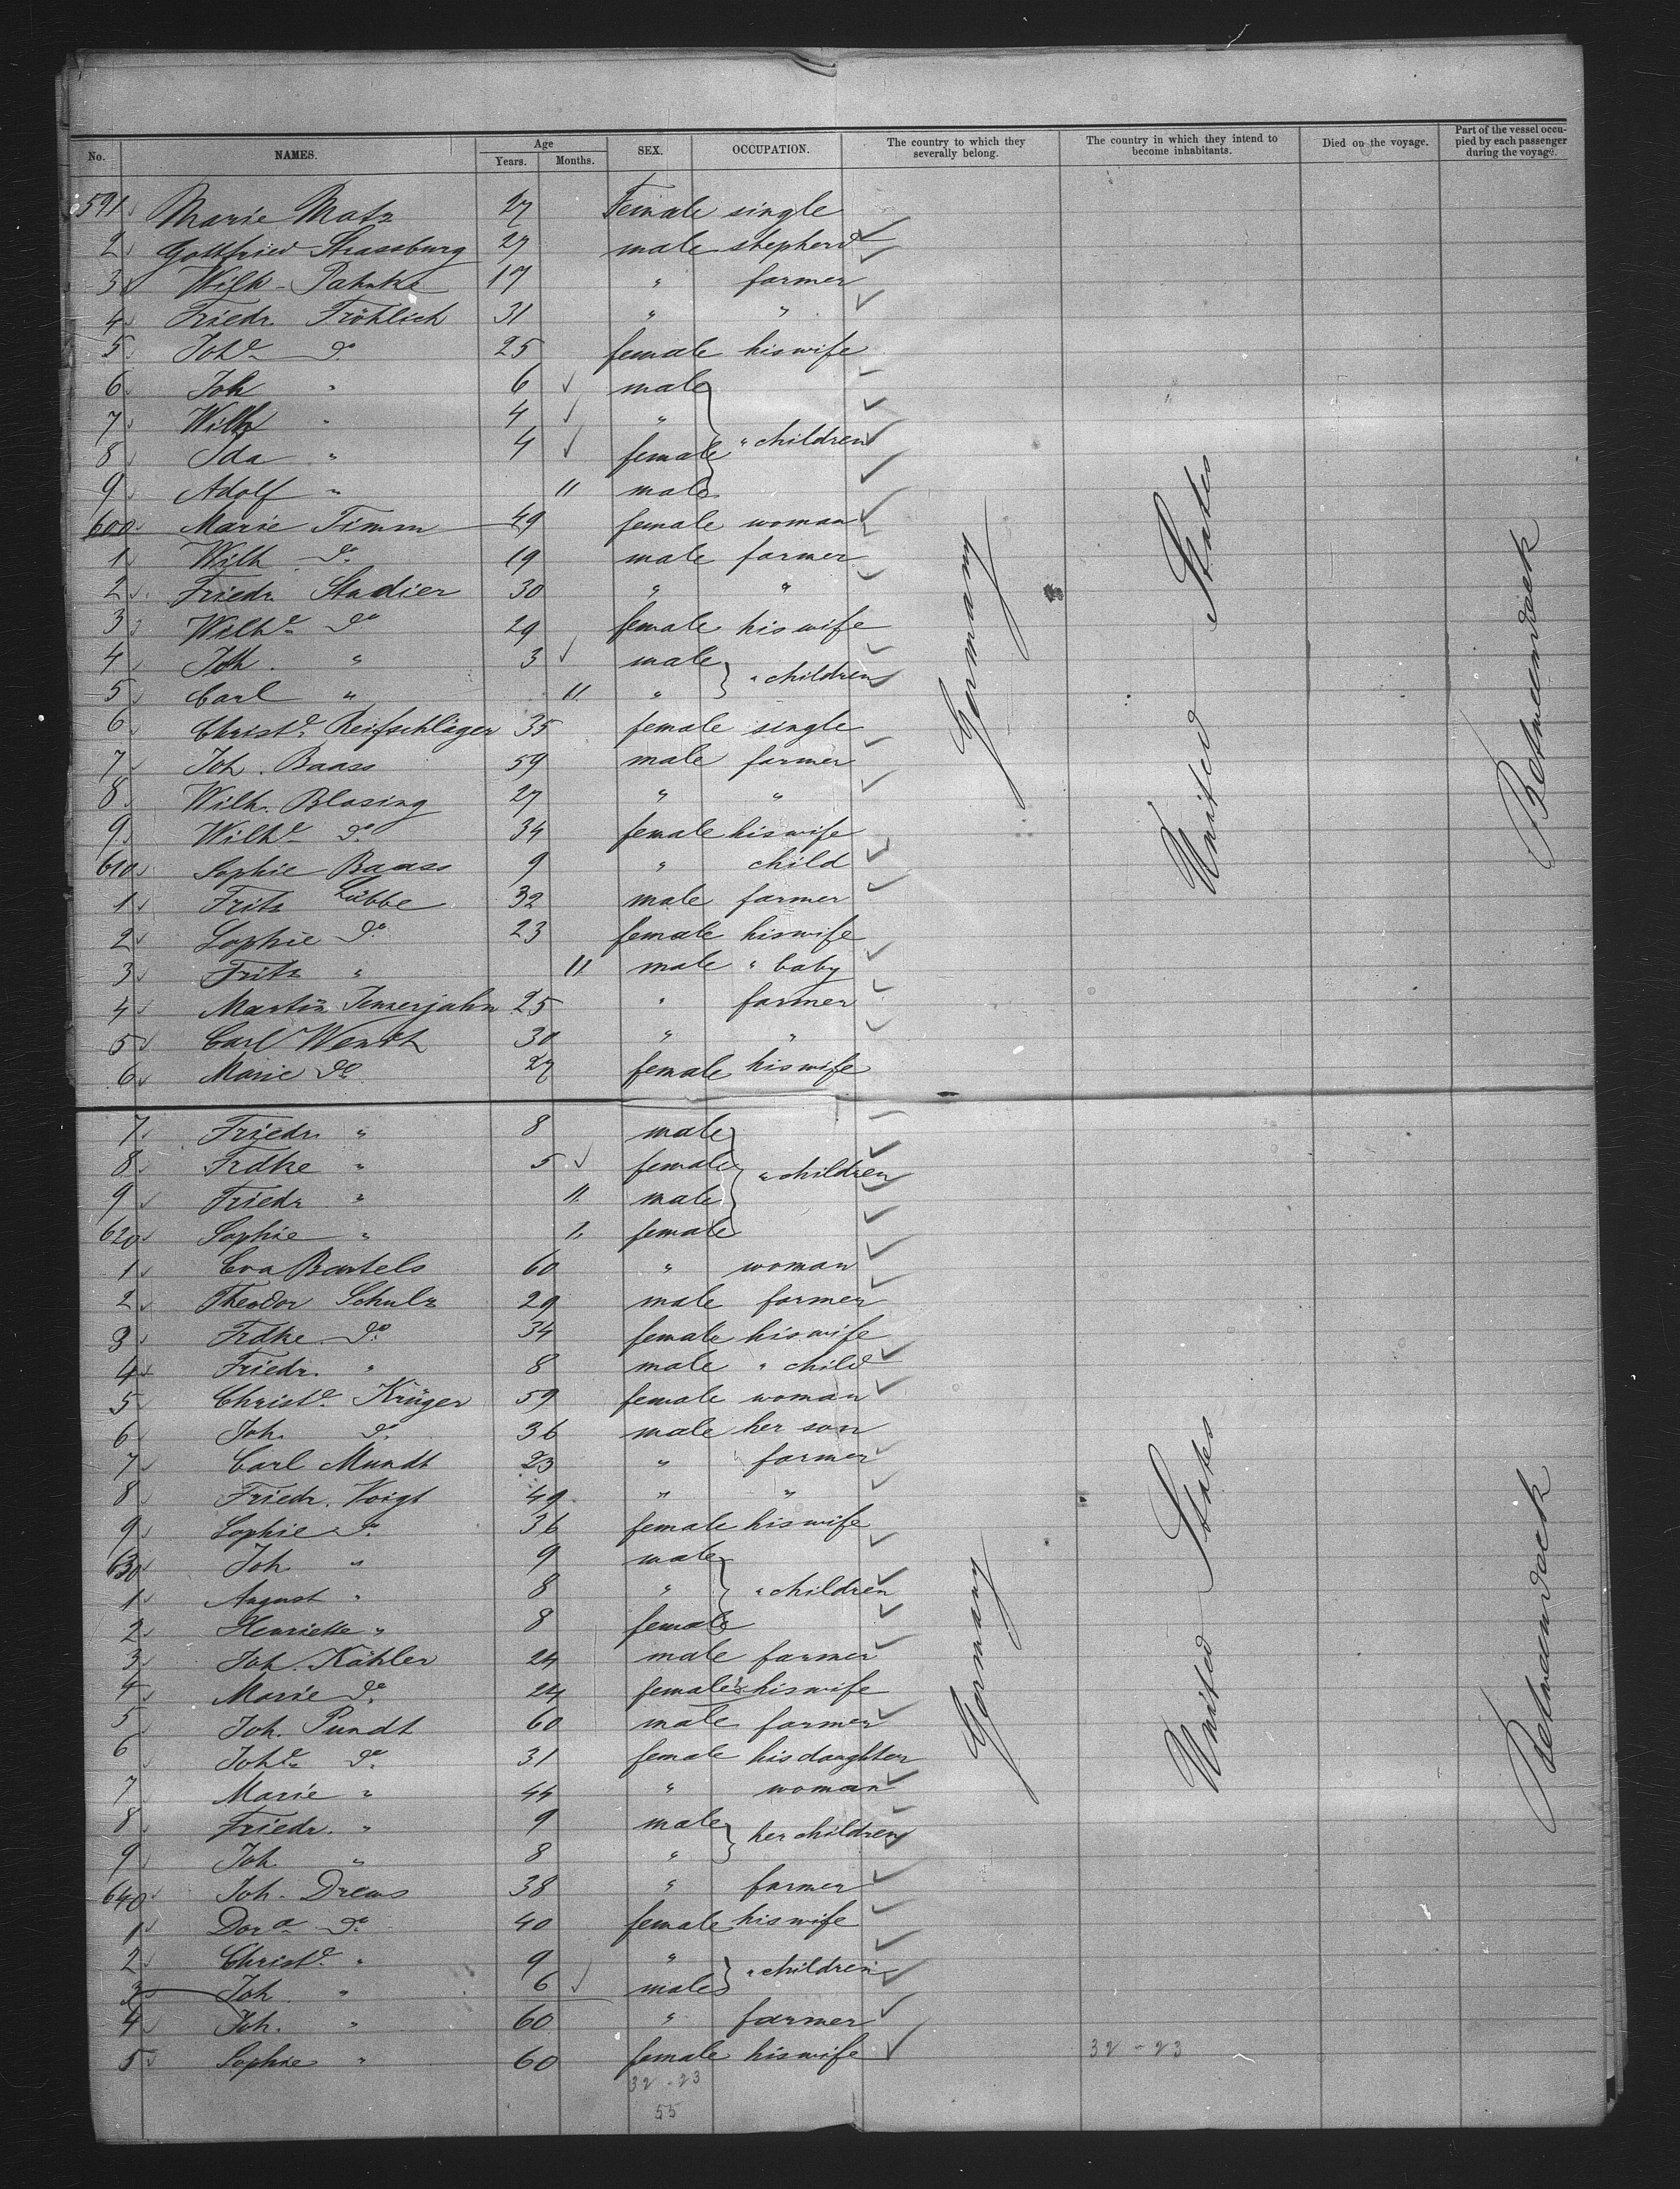 No. NAMES. Age Years. Months. SEX. OCCUPATION. The country to which they severally belong. The country in which they intend to become inhabitants. Died on the voyage. Part of the vessel occupied by each passenger during the voyage.
591 Marie Matz 27 Female single
2 Gottfried Strassburg 27 male shepherd
3 Wilh. Pahnke 17 " farmer
4 Friedr. Fröhlich 31 " "
5 Johe do 25 female his wife
6 Joh " 6 male
7 Wilh " 4 "
8 Ida " 4 female " children
9 Adolf " 11 male
600 Marie Timm 49 female woman
1 Wilh do 19 male farmer
2 Friedr. Stadier 30 " "
3 Wilhe do 29 female his wife
4 Joh. " 3 male
5 Carl " 11 " " children
6 Christe Reifschläger 35 female single
7 Joh. Baass 59 male farmer
8 Wilh. Blasing 27 " "
9 Wilhe do 34 female his wife
610 Sophie Baass 9 " child
1 Fritz Lübbe 32 male farmer
2 Sophie do 23 female his wife
3 Fritz " 11 male " baby
4 Martin Jennerjahn 25 " farmer
5 Carl Wendt 30 " "
6 Marie do 27 female his wife
Germany United States Betweendeck
7 Friedr. " 8 male
8 Frdke " 5 female " children
9 Friedr " 11 male
620 Sophie " 1 female
1 Eva Bartels 60 " woman
2 Theodor Schulz 29 male farmer
3 Frdke do 34 female his wife
4 Friedr. " 8 male " child
5 Christe Krüger 59 female woman
6 Joh. do 36 male her son
7 Carl Mundt 23 " farmer
8 Friedr. Voigt 49 " "
9 Sophie do 36 female his wife
630 Joh " 9 male
1 August " 8 " " children
2 Henriette " 8 female
3 Joh. Kähler 24 male farmer
4 Marie do 24 female his wife
5 Joh. Pundt 60 male farmer
6 Johe do 31 female his daughter
7 Marie " 44 " woman
8 Friedr. " 9 male
9 Joh " 8 " her children
640 Joh. Drews 38 " farmer
1 Dora do 40 female his wife
2 Christe " 9 "
3 Joh " 6 male " children
4 Joh. " 60 " farmer
5 Sophie " 60 female his wife
Germany United States Betweendeck
32 - 23
32 - 23
55